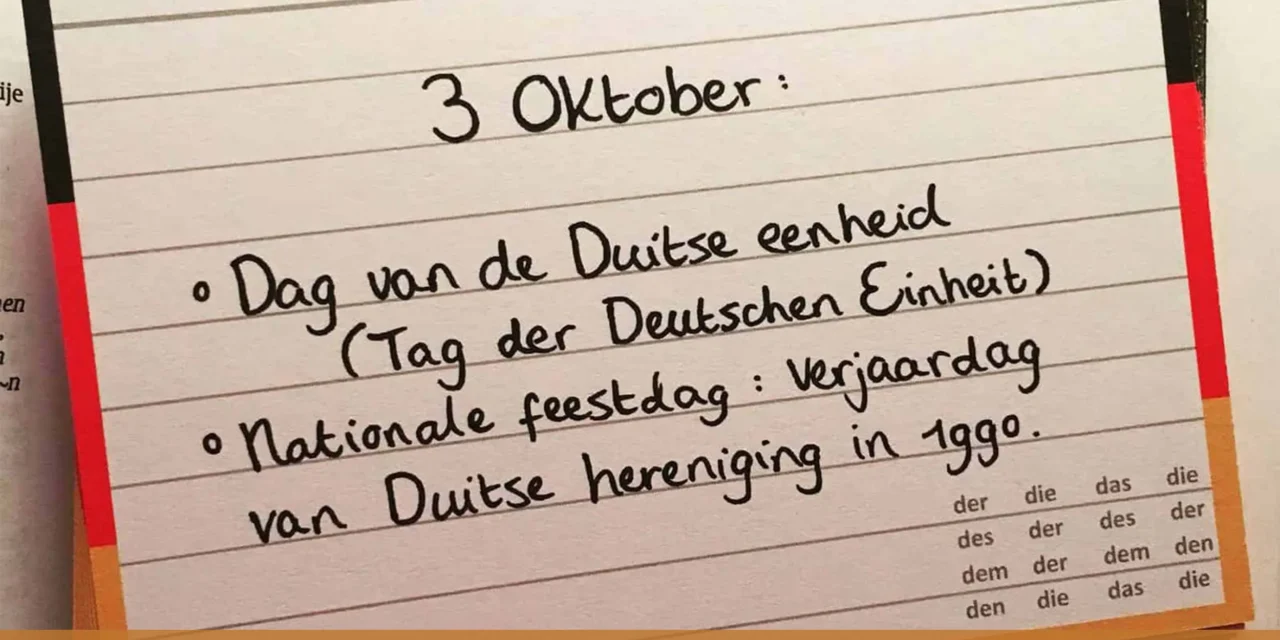 3 Oktober:
° Dag van de Duitse eenheid
(Tag der Deutschen Einheit)
° Nationale feestdag: verjaardag
van Duitse hereniging in 1990.
der die das die
des der des der
dem der dem den
den die das die
ije
en
n